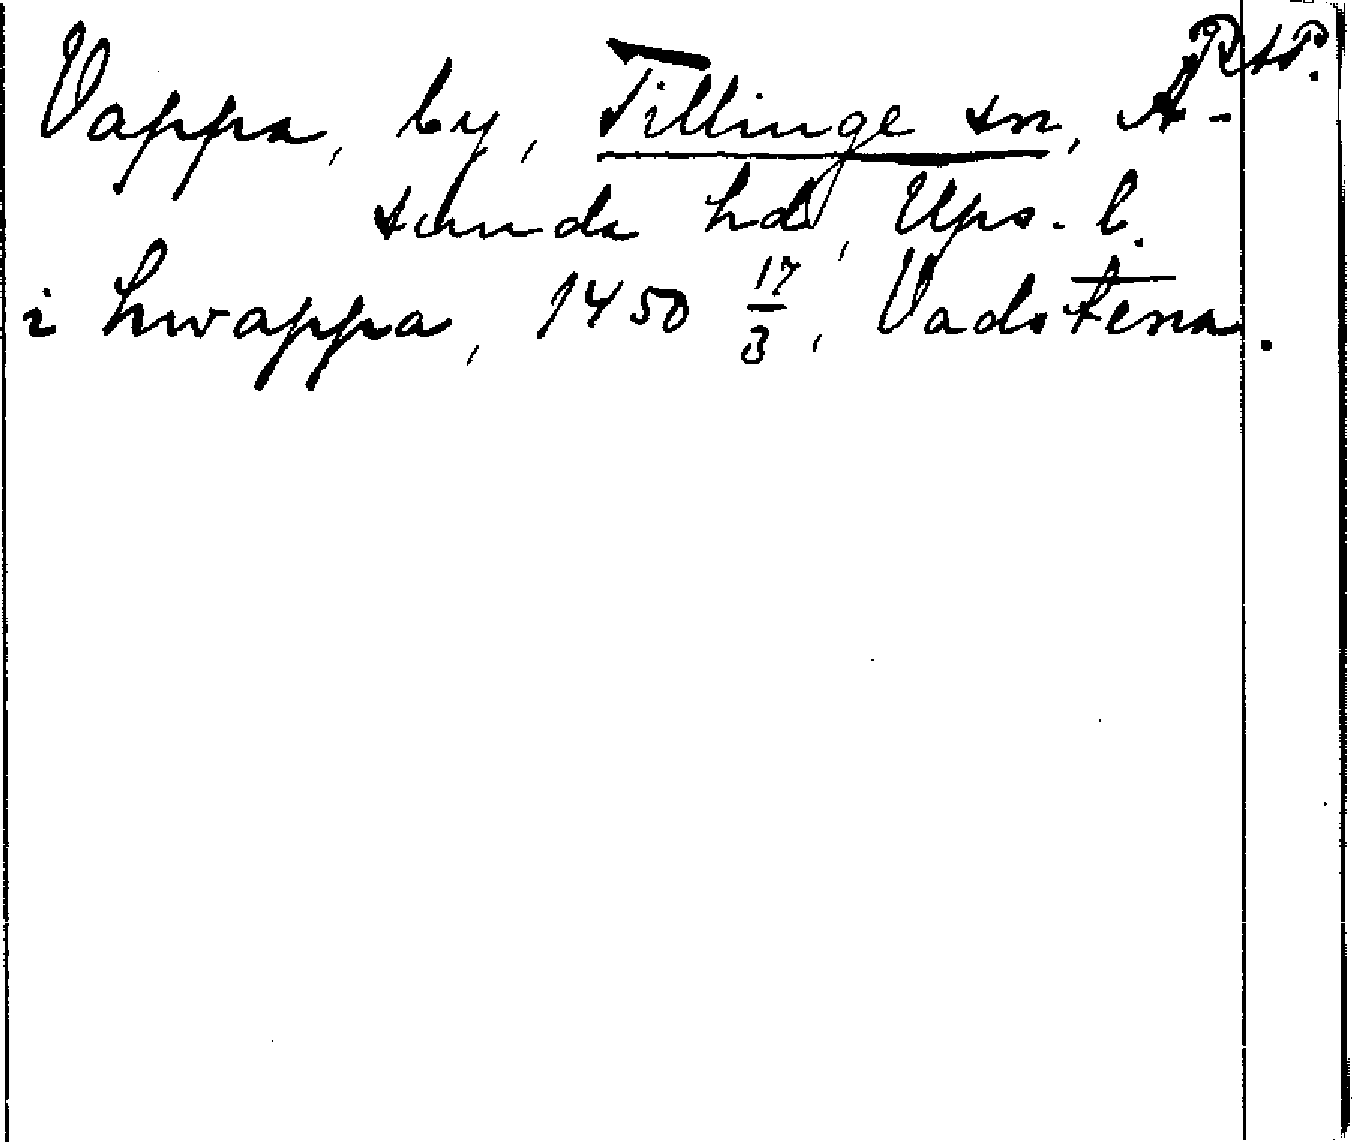 RAP.
Vappa, by, Tillinge sn, A-
sunda hd, Ups. l.
i hwappa, 1450 17/3, Vadstena.